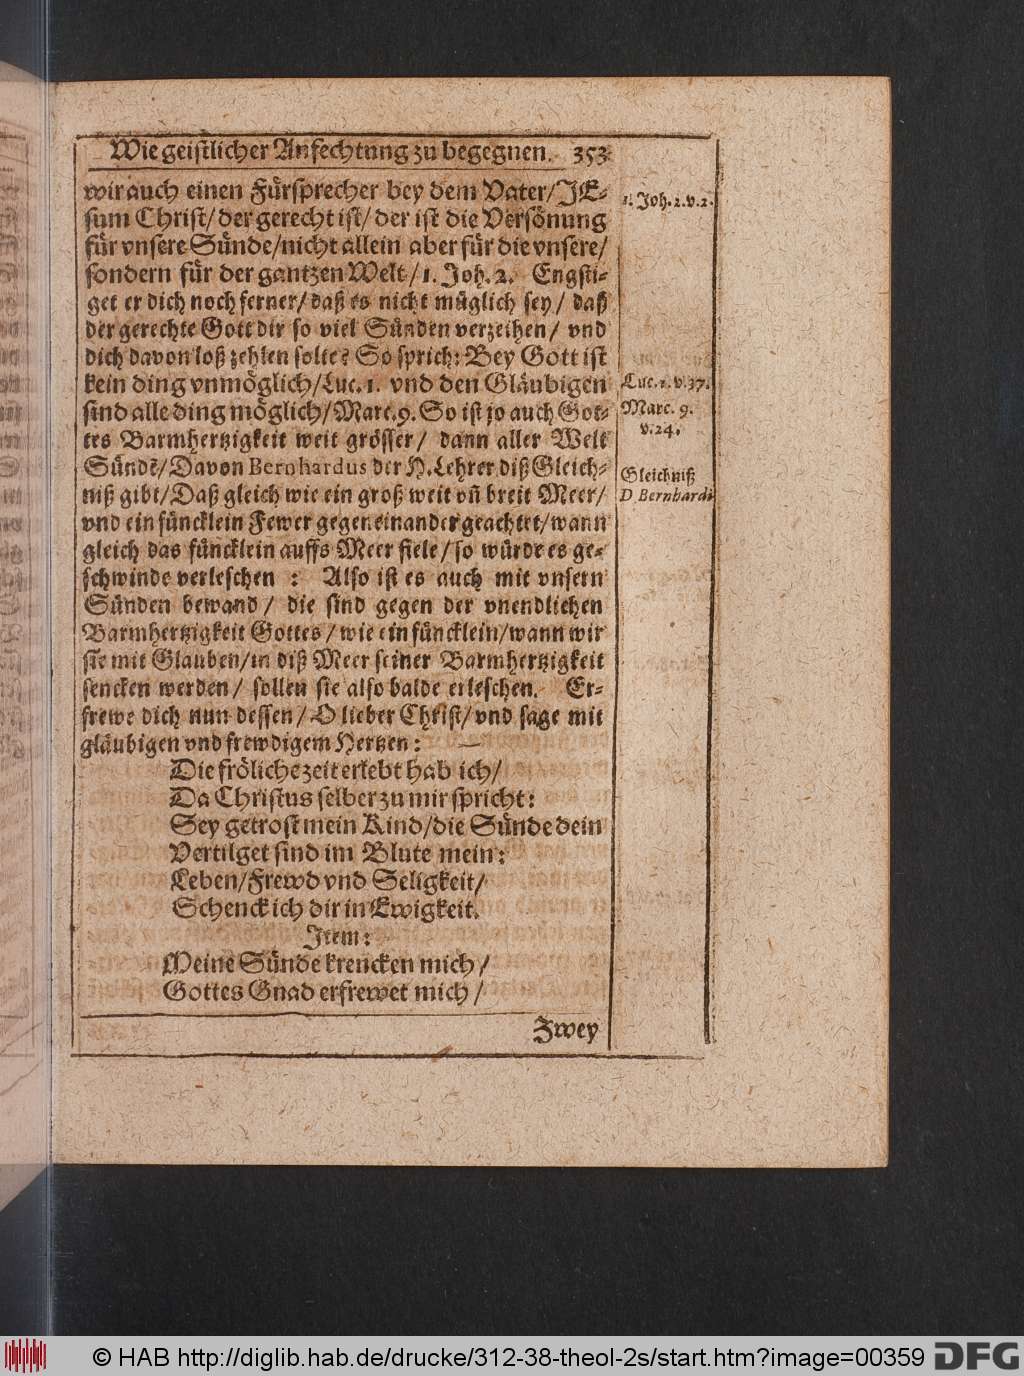 Wie geistlicher Anfechtung zu begegnen. 353
wir auch einen Fürsprecher bey dem Vater/JE-
sum Christ/der gerecht ist/der ist die Versönung
für vnsere Sünde/nicht allein aber für die vnsere/
sondern für der gantzen Welt/1. Joh. 2. Engsti-
get er dich noch ferner/daß es nicht müglich sey/ daß
der gerechte Gott dir so viel Sünden verzeihen/ vnd
dich davon loß zehlen solte? So sprich: Bey Gott ist
kein ding vnmöglich/Luc. 1. vnd den Gläubigen
sind alle ding möglich/Marc. 9. So ist jo auch Got-
tes Barmhertzigkeit weit grösser/ dann aller Welt
Sündē/Davon Bernhardus der H. Lehrer diß Gleich-
niß gibt/Daß gleich wie ein groß weit vñ breit Meer/
vnd ein füncklein Fewer gegen einander geachtet/wann
gleich das füncklein auffs Meer fiele/so würde es ge-
schwinde verleschen : Also ist es auch mit vnsern
Sünden bewand/ die sind gegen der vnendlichen
Barmhertzigkeit Gottes/wie ein füncklein/wann wir
sie mit Glauben/in diß Meer seiner Barmhertzigkeit
sencken werden/ sollen sie also balde erleschen. Er-
frewe dich nun dessen/O lieber Christ/vnd sage mit
gläubigen vnd frewdigem Hertzen:
Die fröliche zeit erlebt hab ich/
Da Christus selber zu mir spricht:
Sey getrost mein Kind/die Sünde dein
Vertilget sind im Blute mein:
Leben/Frewd vnd Seligkeit/
Schenck ich dir in Ewigkeit.
Item:
Meine Sünde krencken mich/
Gottes Gnad erfrewet mich/
Zwey
1. Joh. 2. v. 2.
Luc. 1. v. 37.
Marc. 9.
v. 24.
Gleichniß
D. Bernhardi
© HAB http://diglib.hab.de/drucke/312-38-theol-2s/start.htm?image=00359
DFG